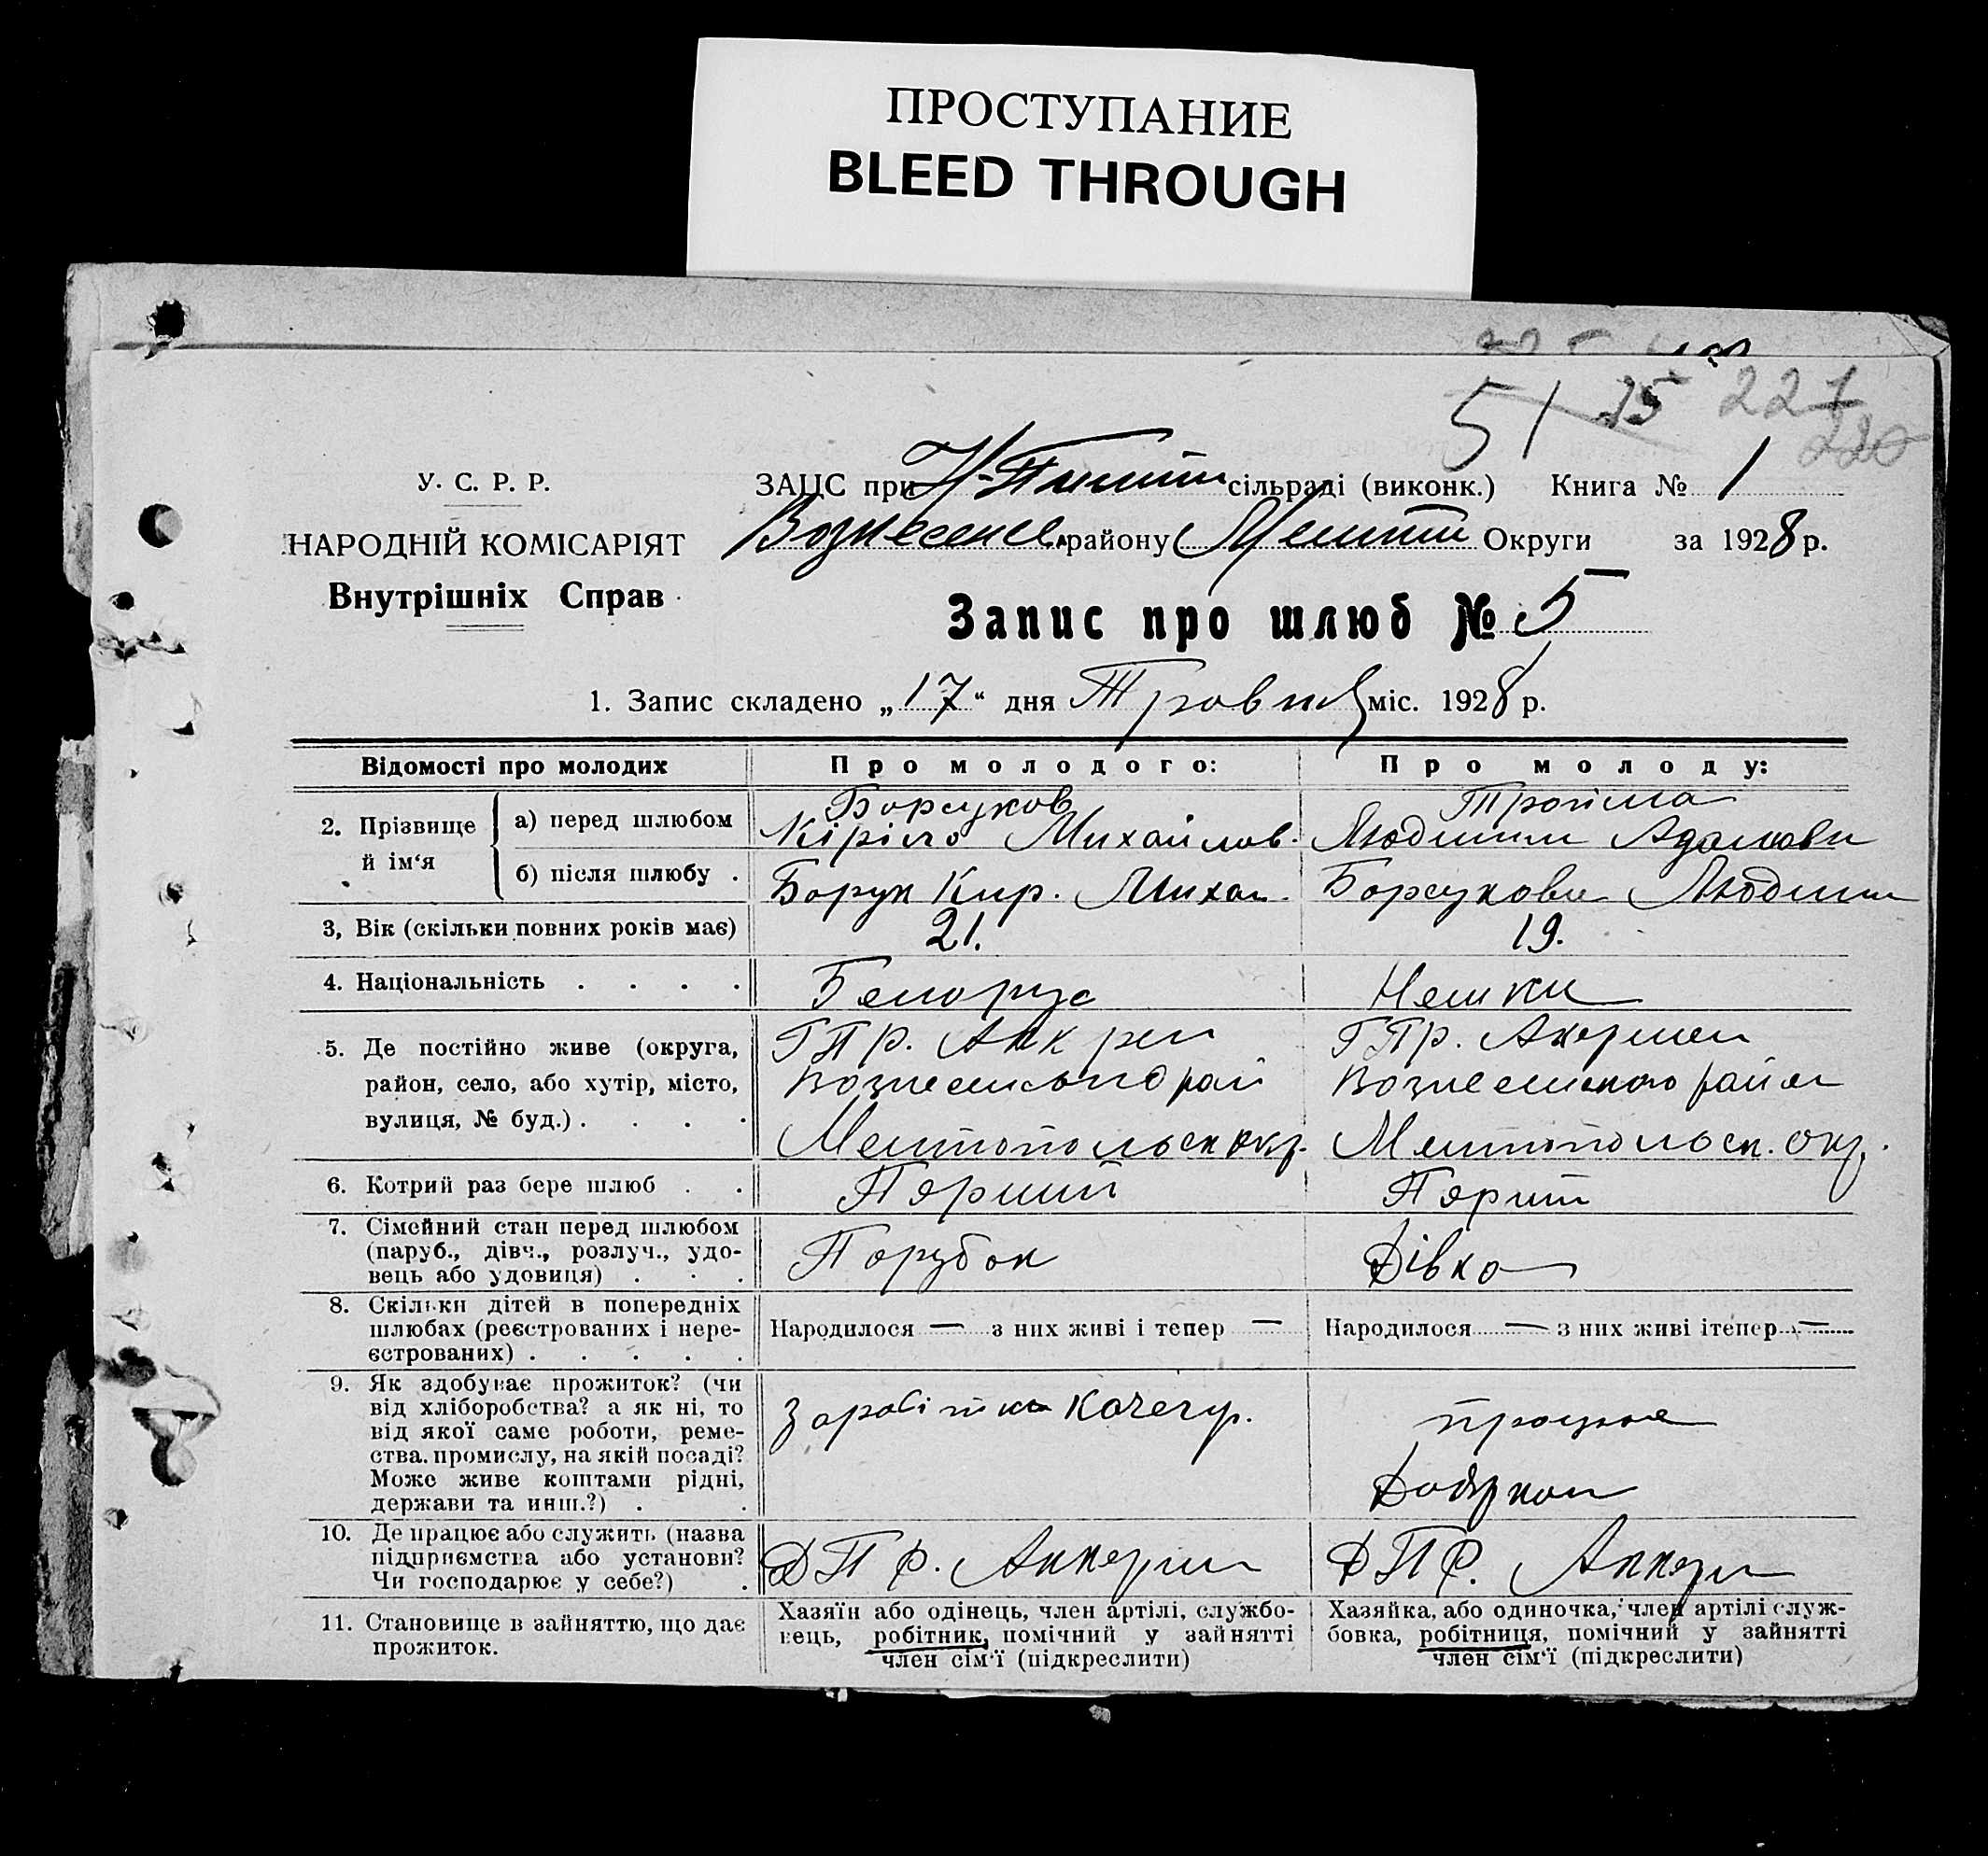 ПРОСТУПАНИЕ
BLEED THROUGH
51 25 227
220
У. С. Р. Р.
НАРОДНІЙ КОМІСАРІЯТ
Внутрішніх Справ
ЗАЦС при сільраді (виконк.) Книга № 1
Вознесенс. району Меліт Округи за 1928 р.
Запис про шлюб № 5
1. Запис складено „17“ дня Травня міс. 1928 р.
Відомості про молодих
Про молодого:
Про молоду:
2. Прізвище й ім‘я
а) перед шлюбом
Борсуков
Кіріло Михайлов.
Людмила Адамовн
б) після шлюбу .
Кир. Миха
Борсукова Людмил
3, Вік (скільки повних років має)
21.
19.
4. Національність . . . .
Белорус
Немка
5. Де постійно живе (округа,
район, село, або хутір, місто,
вулиця, № буд.) . . . .
ГПР.
рай
Мелитопольск окр.
ГПр. Акермен
района
Мелитопольск. окр.
6. Котрий раз бере шлюб . .
Перший
7. Сімейний стан перед шлюбом
(паруб., дівч., розлуч., удо-
вець або удовиця) . . .
Парубок
Дівка
8. Скільки дітей в попередніх
шлюбах (реєстрованих і нере-
єстрованих) . . . . .
Народилося — з них живі і тепер —
Народилося — з них живі ітепер —
9. Як здобуває прожиток? (чи
від хліборобства? а як ні, то
від якої саме роботи, реме-
ства. промислу, на якій посаді?
Може живе коштами рідні,
держави та инш.?) . .
Кочегар.
працює
Дояркой
10. Де працює або служить (назва
підприємства або установи?
Чи господарює у себе?) .
ДПР.
ДПР.
11. Становище в зайняттю, що дає
прожиток.
Хазяїн або одінець, член артілі, службо-
вець, робітник, помічний у зайнятті
член сім‘ї (підкреслити)
Хазяйка, або одиночка, член артілі служ-
бовка, робітниця, помічний у зайнятті
член сім‘ї (підкреслити)